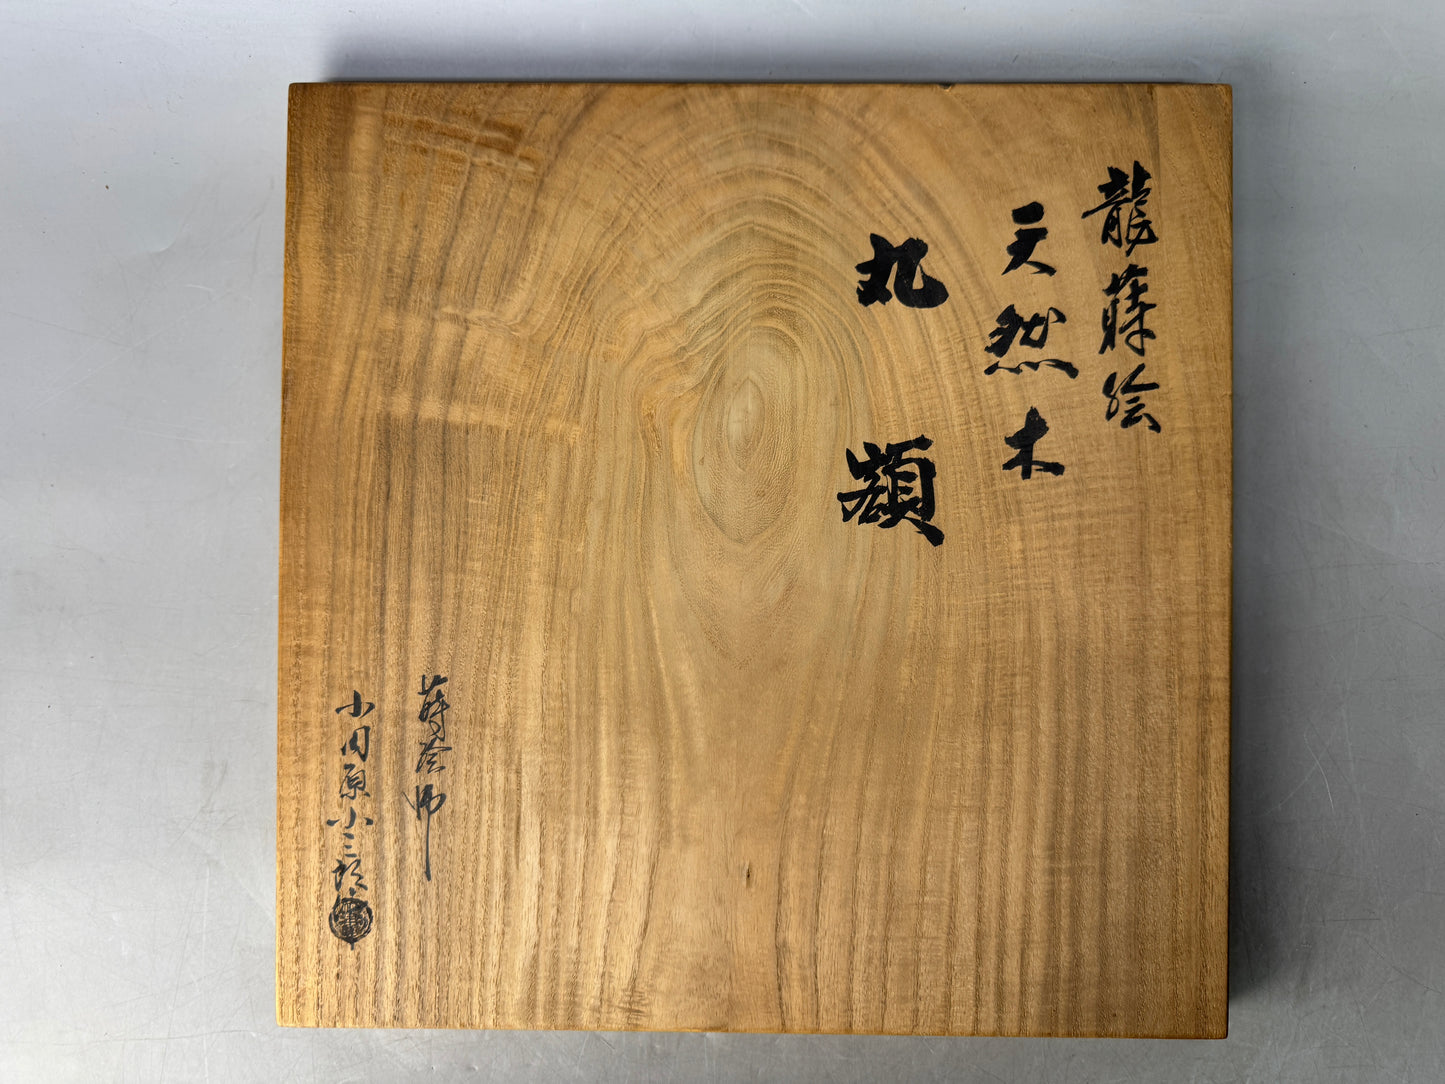 龍蒔絵
天然木
丸額
蒔絵師
小田原小三郎